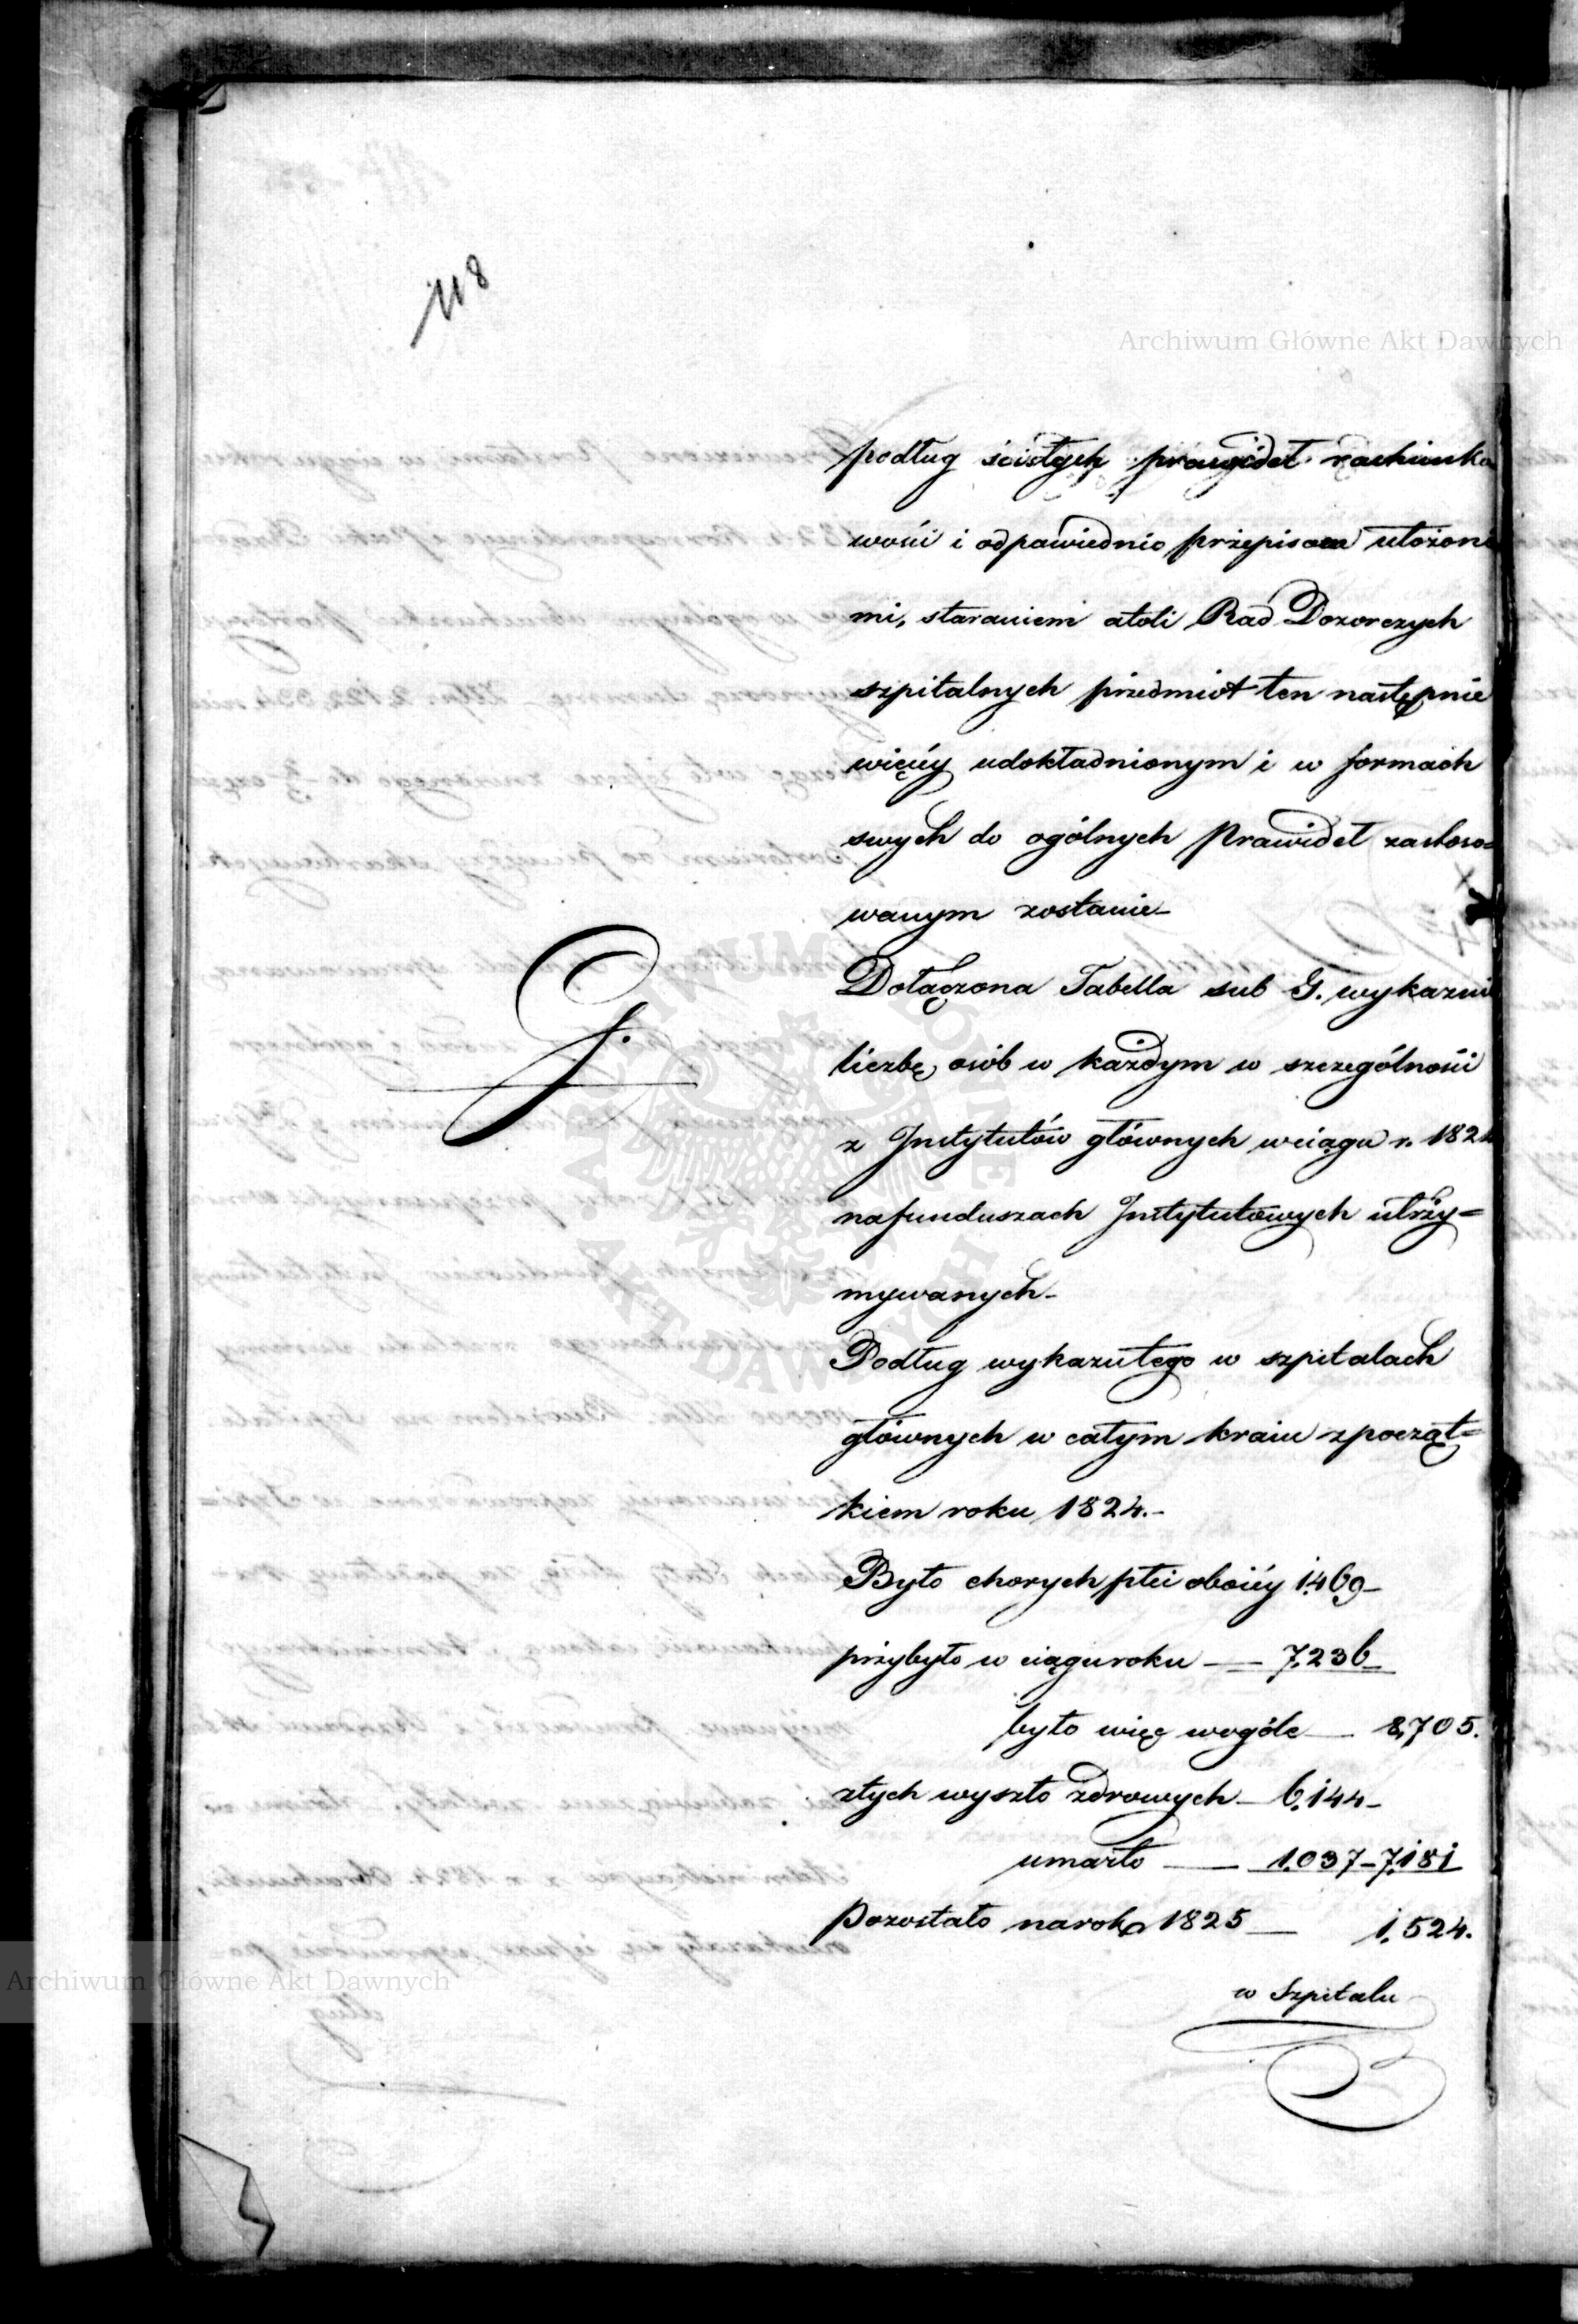 118
Archiwum Główne Akt Dawnych
podług ścisłych prawideł rachunko
wości i odpowiednio przepisom ułożone
mi, staraniem atoli Rad Dozorczych
szpitalnych przedmiot ten następnie
więcéy udokładnionym i w formach
swych do ogólnych Prawideł zastoso=
wanym zostanie-
G.
Dołączona Tabella sub G. wykazuie
liczbę osób w każdym w szczególności
z Instytutów głównych wciągu r. 1824
nafunduszach Instytutowych utrzy=
mywanych-
Podług wykazu tego w szpitalach
głównych w całym kraiu zpocząt=
kiem roku 1824.-
Było chorych płci oboiéy 1.469-
przybyło w ciągu roku — 7.236
było więc wogóle — 8,705.
ztych wyszło zdrowych - 6,144-
umarło — 1.037-7,181
Pozostało narok 1825 — 1.524.
w Szpitalu
Archiwum Główne Akt Dawnych
ARCHIWUM GŁÓWNE AKT DAWNYCH